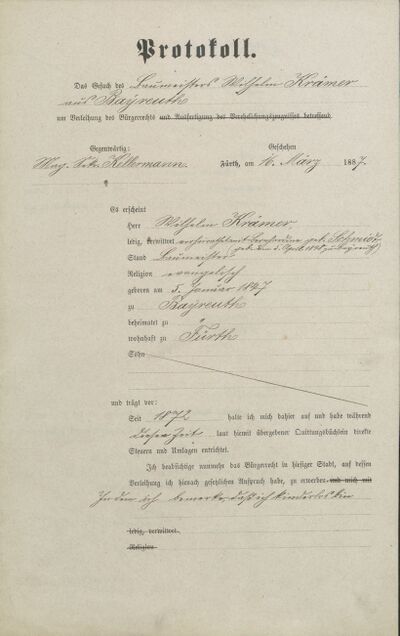 Protokoll.
Das Gesuch des Baumeisters Wilhelm Krämer
aus Bayreuth
um Verleihung des Bürgerrechts und Ausfertigung des Verehelichungszeugnisses betreffend.
Gegenwärtig:
Mag. Sekr. Kellermann.
Geschehen
Fürth, am 16. März 1887.
Es erscheint
Herr Wilhelm Krämer,
ledig, verwittwet verheirathet mit geb. Schmidt
geb. den 5. April zu Bayreuth
Stand Baumeister
Religion evangelisch
geboren am 5. Januar 1847
zu Bayreuth
beheimatet zu "
wohnhaft zu Fürth
Sohn
und trägt vor:
Seit 1872 halte ich mich dahier auf und habe während
dieser Zeit laut hiemit übergebener Quittungsbüchlein direkte
Steuern und Umlagen entrichtet.
Ich beabsichtige nunmehr das Bürgerrecht in hiesiger Stadt, auf dessen
Verleihung ich hienach gesetzlichen Anspruch habe, zu erwerben und mich mit
Indem ich bemerke, daß ich kinderlos bin
ledig, verwittwet.
Religion